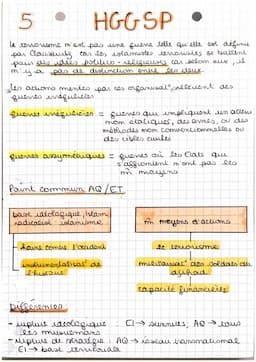 5 HGGSP
le terrorisme n'est pas une guerre telle qu'elle est définie
par Clausewitz car les islamistes terroristes se battent
pour des idées politico-religieuses car selon eux, il
n'y a pas de distinction entre les deux.
les actions menées par ces relèvent des
guerres irrégulières
guerres irrégulières = guerres qui impliquent les acteurs
non étatiques, des armes, ou des
méthodes non conventionnelles ou
des cibles civiles
guerres asymétriques = guerres où les États qui
s'affrontent n'ont pas les
m̂ moyens
Point commun AQ/EI
base idéologique, Islam
radicalisé islamisme
m̂ moyens d'actions
haine contre l'occident
le terrorisme
instrumentalisat° de
l'histoire
des soldats du
djihad
capacité financières
Différences
- rupture idéologique : EI → sunnites, AQ → tous
les musulmans
- rupture de stratégie : AQ → réseau transnational
EI → base territoriale